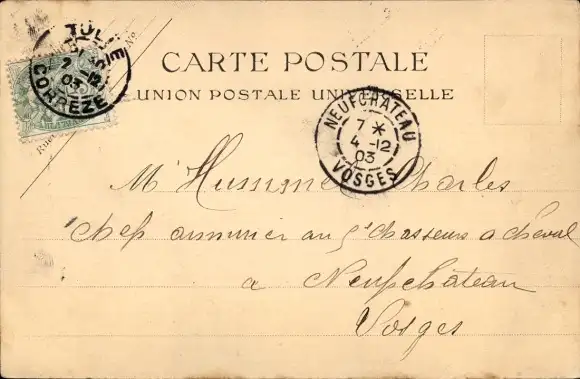 TULLE
2 -12
03
CORRÈZE
CARTE POSTALE
UNION POSTALE UNIVERSELLE
NEUFCHATEAU
7 *
4 -12
03
VOSGES
Mr Hummel Charles
chef armurier au 5e chasseurs a cheval
a Neufchâteau
Vosges